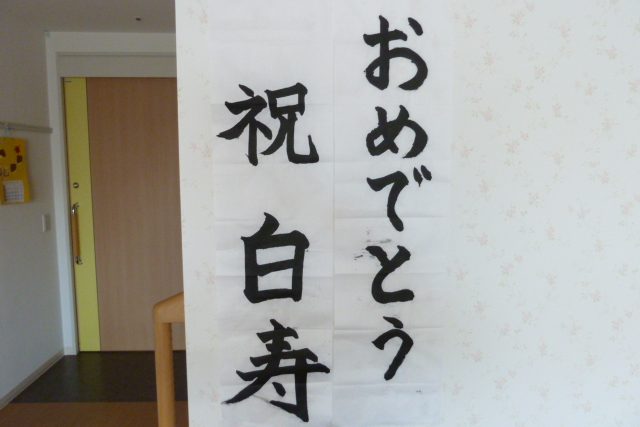 おめでとう
祝白寿